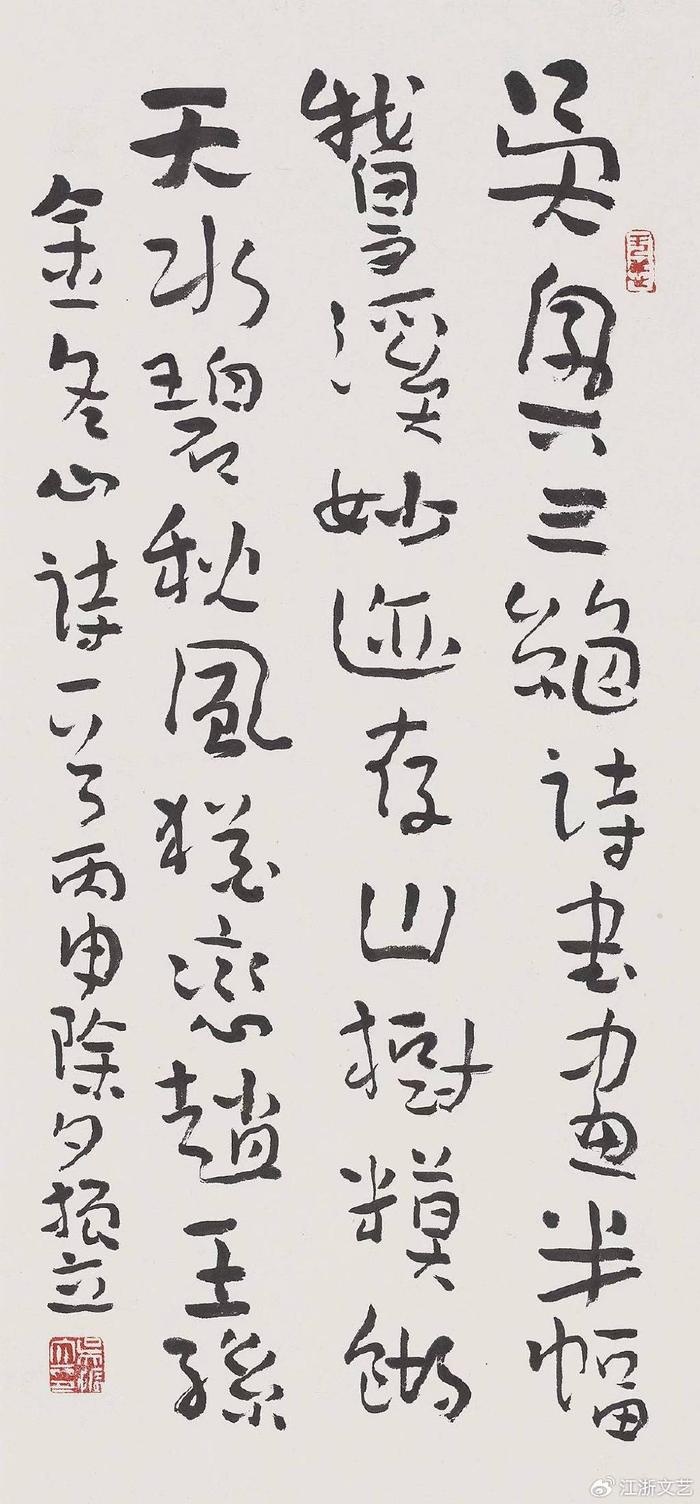 吳興三絕詩書畫半幅
鵞溪妙迹存山樹糢餬
天水碧秋風猶戀趙王孫
金冬心詩一首丙申除夕振立
江浙文艺